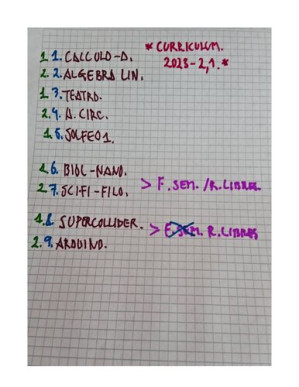 * CURRICULUM.
2023-2,1. *
1 1. CALCULO-D.
2 2. ALGEBRA LIN.
1 3. TEATRO.
2 4. A. CIRC.
1 5. SOLFEO 1.
1 6. BIOL-NANO.
2 7. SCIFI-FILO.
> F. SEM. /R. LIBRES
1 8. SUPERCOLLIDER.
2 9. ARDUINO.
> F. SEM. R. LIBRES